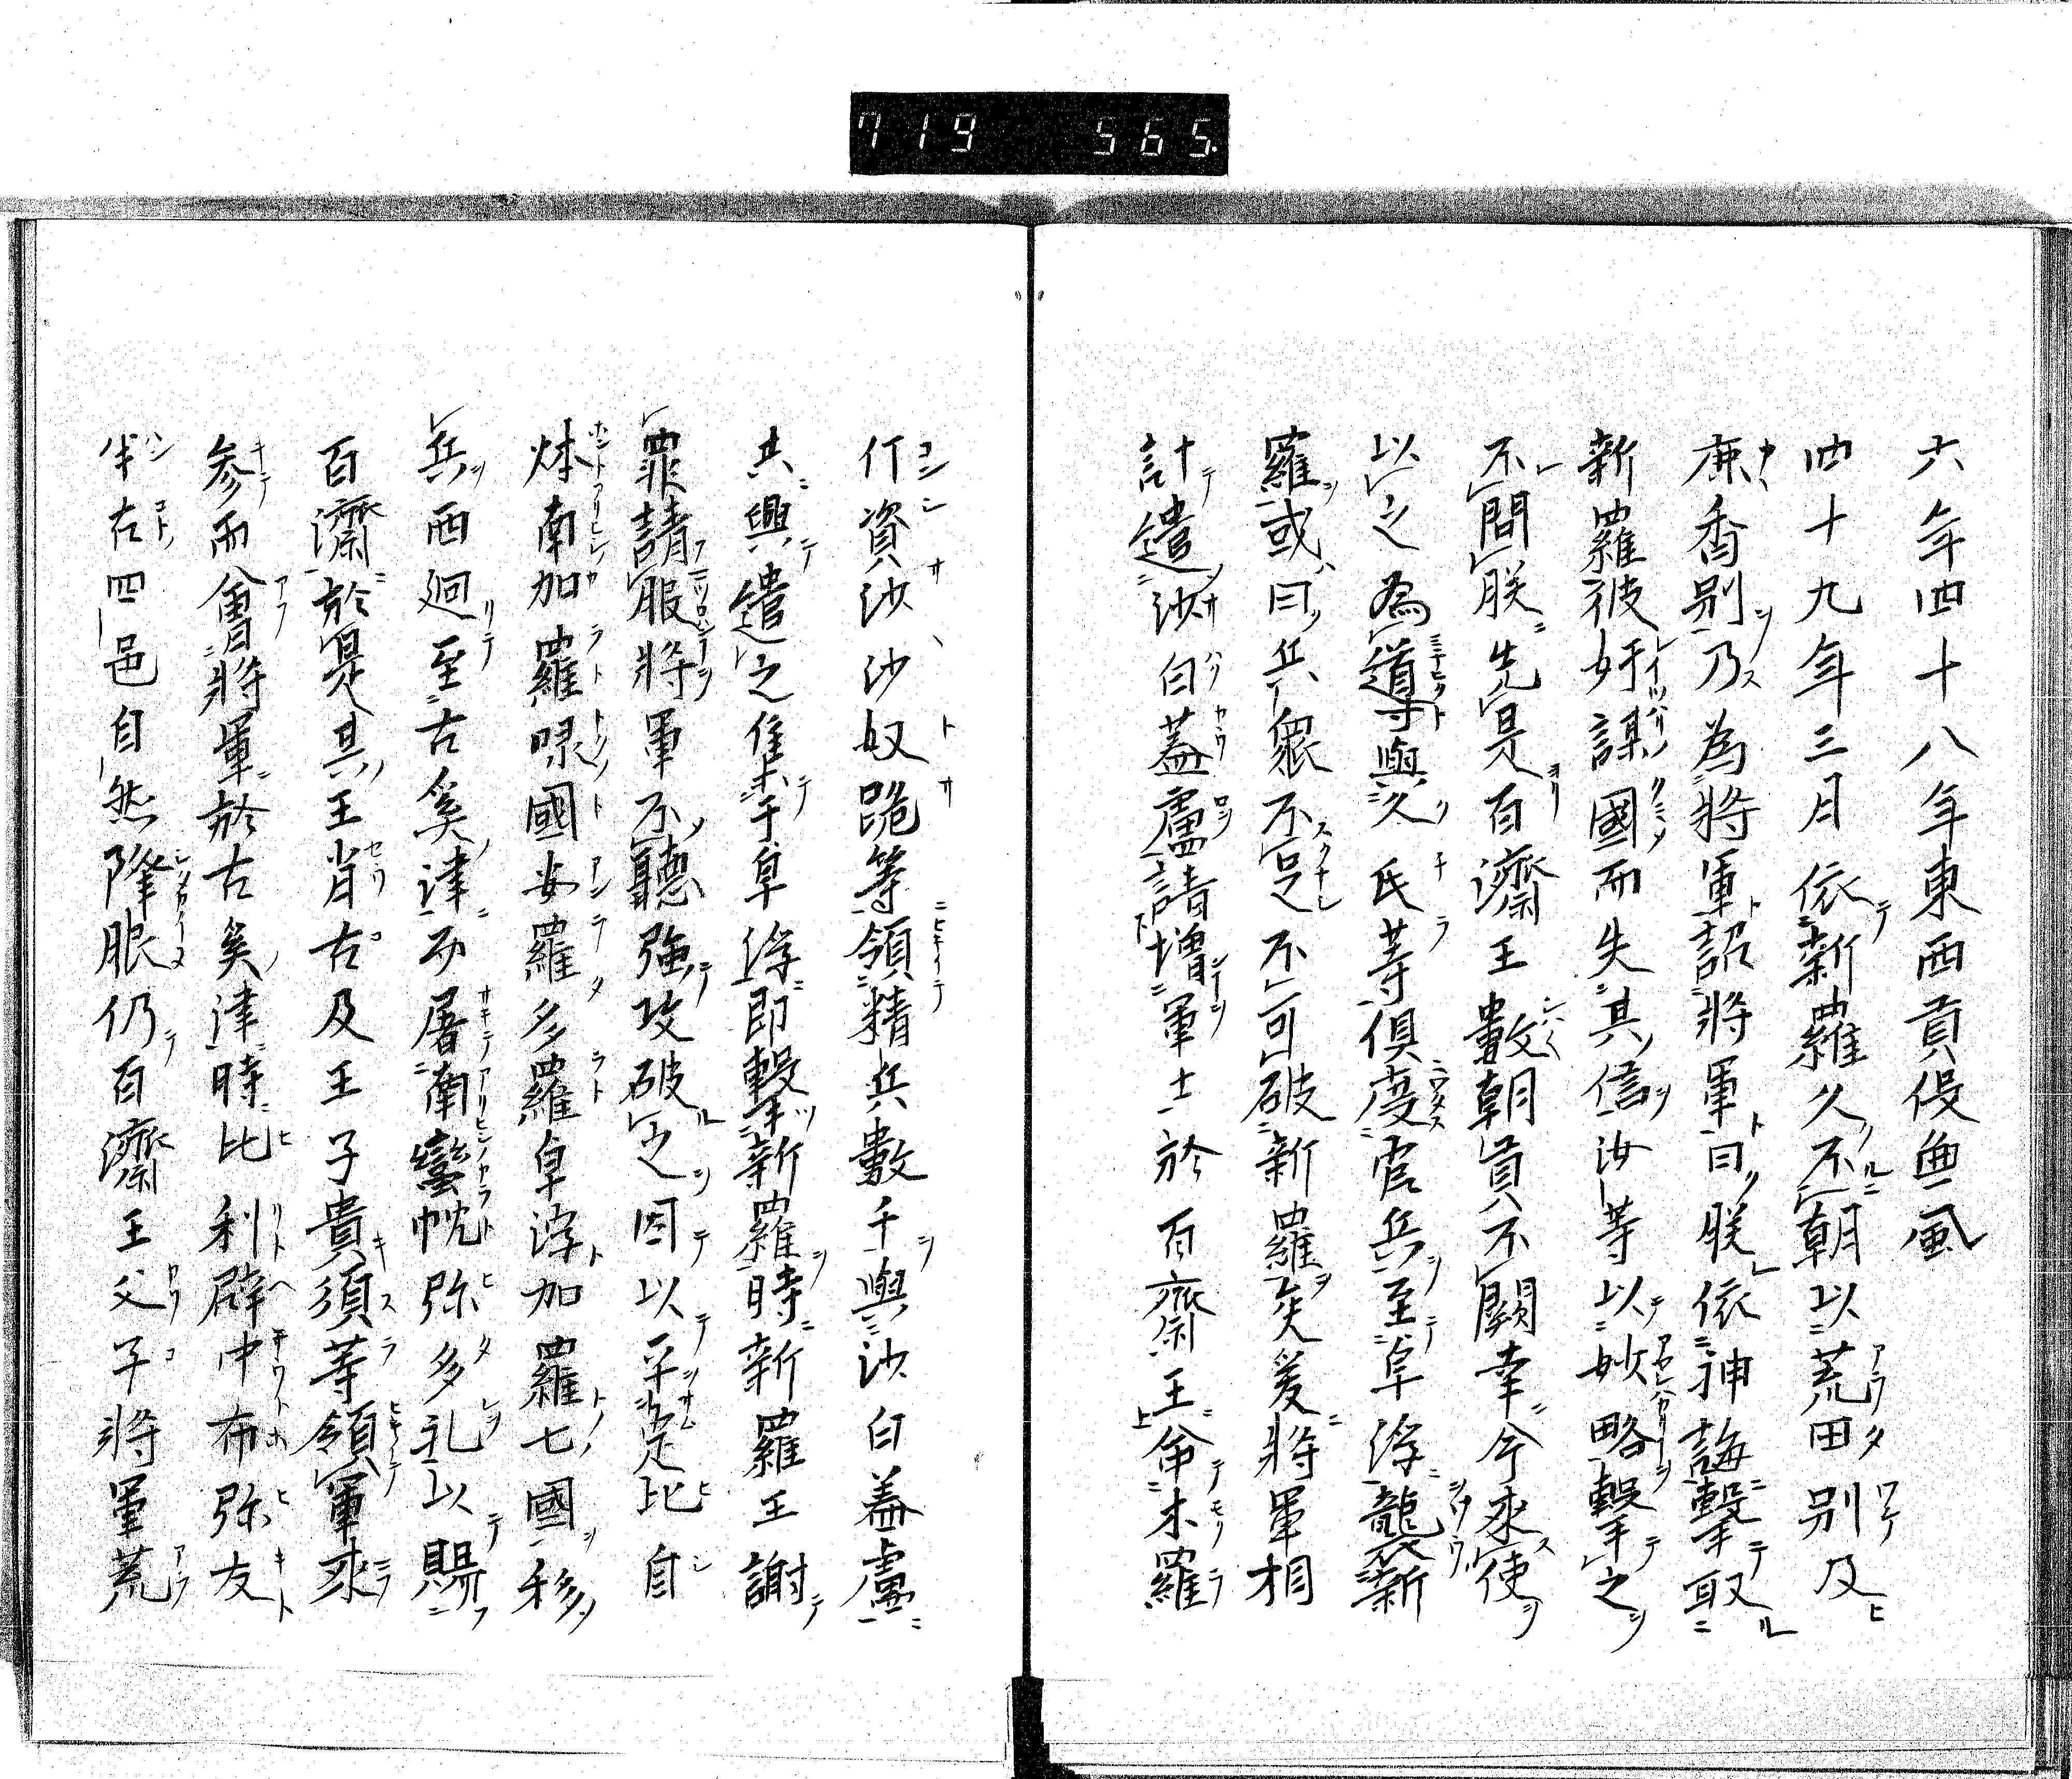 719 565.
六年四十八年東西貢侵魚風
四十九年三月依新羅久不朝以荒田別及
鹿香別乃為将軍詔将軍曰朕依神誨撃取
新羅彼奸謀國而失其信汝等以妙略撃之
不間朕先是百濟王數朝貢不闕幸今來使
以之為導與久氏等倶度官兵至卓淳襲新
羅或曰兵衆不足不可破新羅矣爰将軍相
計遣沙白蓋盧請増軍士於百齋王命木羅
斤資沙沙奴跪等領精兵數千與沙白盖盧
共興遣之隻于卓淳即撃新羅時新羅王謝
罪請服将軍不聽強攻破之因以平定比自
㶱南加羅㖨國安羅多羅卓淳加羅七國移
兵西廻至古奚津而屠南蠻忱弥多礼以賜
百濟於是其王肖古及王子貴須等領軍來
参而會将軍於古奚津時比利辟中布弥友
半古四邑自然降服仍百濟王父子将軍荒